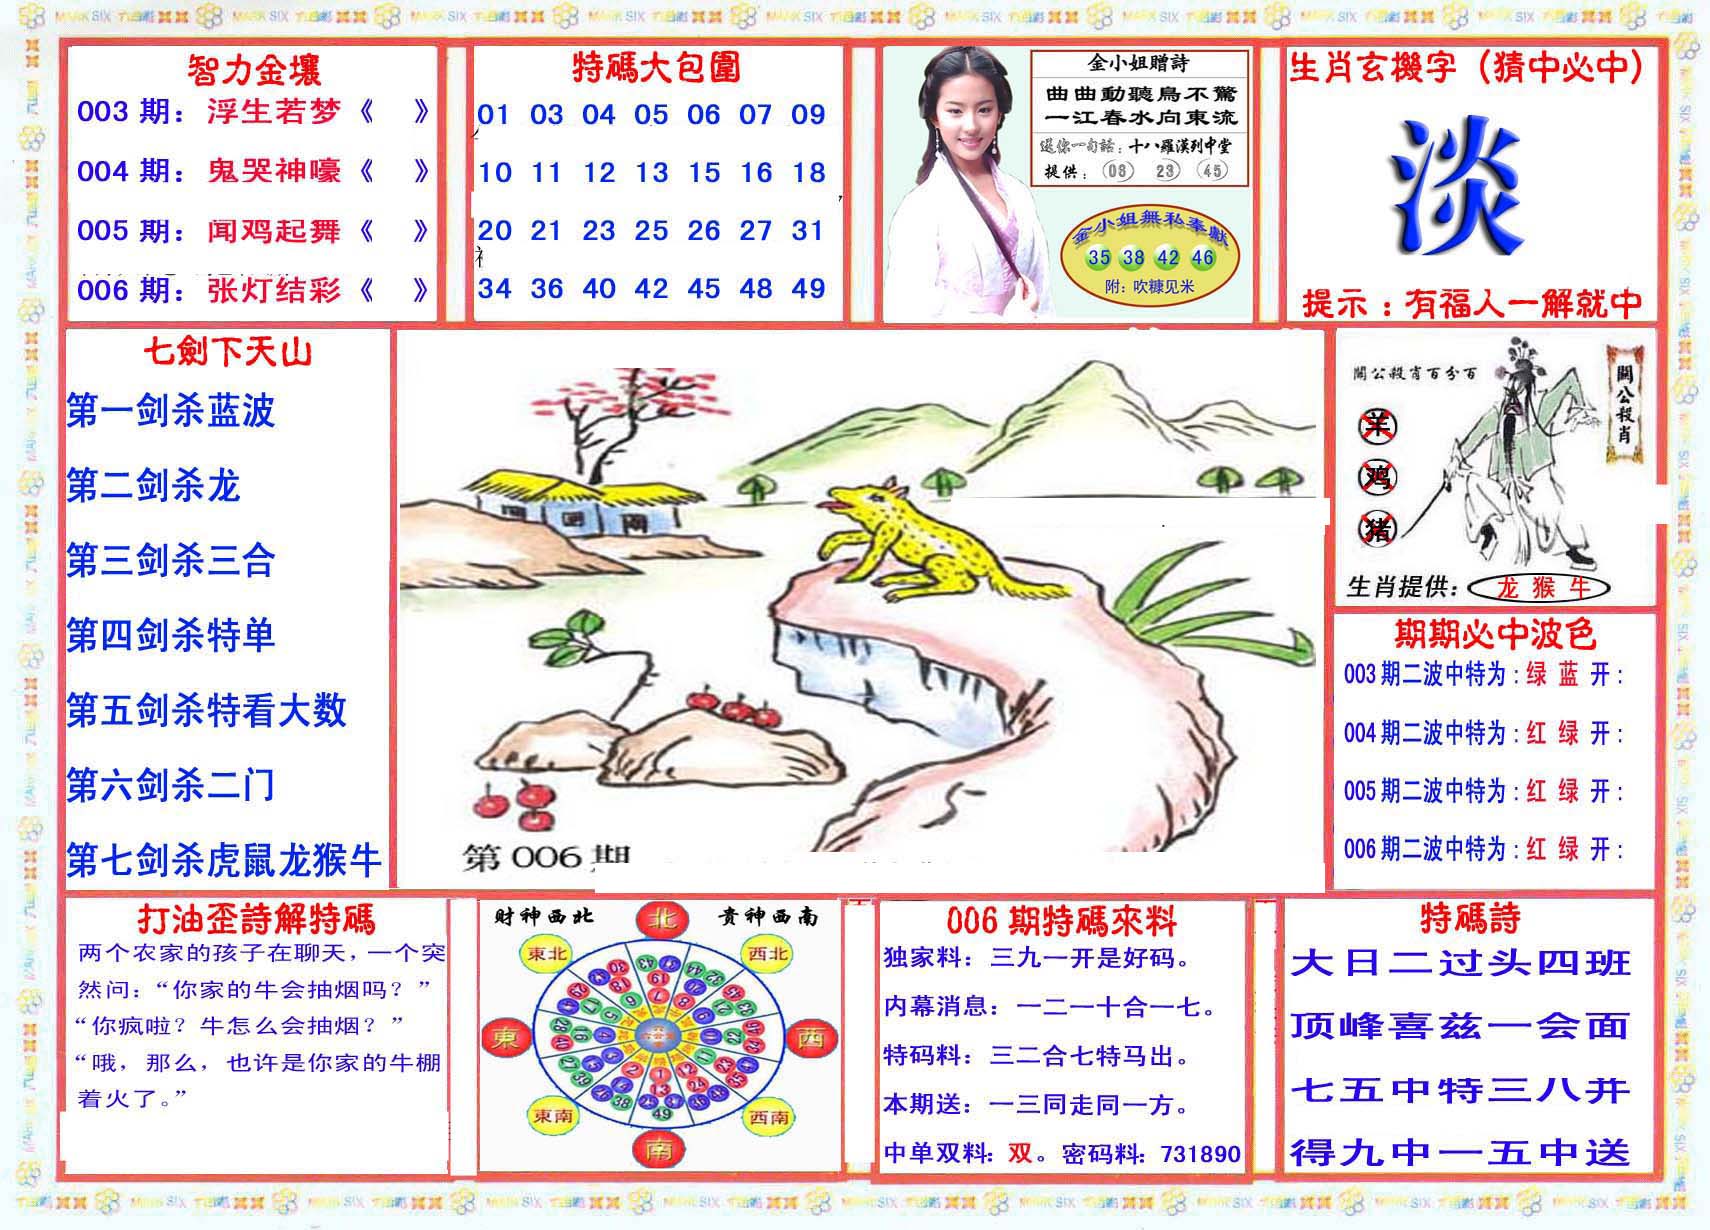 智力金壤
003 期：浮生若梦《 》
004 期：鬼哭神嚎《 》
005 期：闻鸡起舞《 》
006 期：张灯结彩《 》
特碼大包圍
01 03 04 05 06 07 09
10 11 12 13 15 16 18
20 21 23 25 26 27 31
34 36 40 42 45 48 49
金小姐贈詩
曲曲動聽鳥不驚
一江春水向東流
送你一句話：十八羅漢列中堂
提供：(03) 23) (45)
金小姐無私奉獻
35 38 42 46
附：吹糠见米
生肖玄機字（猜中必中）
淡
提示：有福人一解就中
七劍下天山
第一剑杀蓝波
第二剑杀龙
第三剑杀三合
第四剑杀特单
第五剑杀特看大数
第六剑杀二门
第七剑杀虎鼠龙猴牛
第 006 期
關公殺肖百分百
關公殺肖
羊
鸡
猪
生肖提供：龙 猴 牛
期期必中波色
003 期二波中特为：绿 蓝 开：
004 期二波中特为：红 绿 开：
005 期二波中特为：红 绿 开：
006 期二波中特为：红 绿 开：
打油歪詩解特碼
两个农家的孩子在聊天，一个突
然问：“你家的牛会抽烟吗？”
“你疯啦？牛怎么会抽烟？”
“哦，那么，也许是你家的牛棚
着火了。”
財神西北
貴神西南
北
東北
西北
東
西
東南
西南
南
006 期特碼來料
独家料：三九一开是好码。
内幕消息：一二一十合一七。
特码料：三二合七特马出。
本期送：一三同走同一方。
中单双料：双。密码料：731890
特碼詩
大日二过头四班
顶峰喜兹一会面
七五中特三八并
得九中一五中送